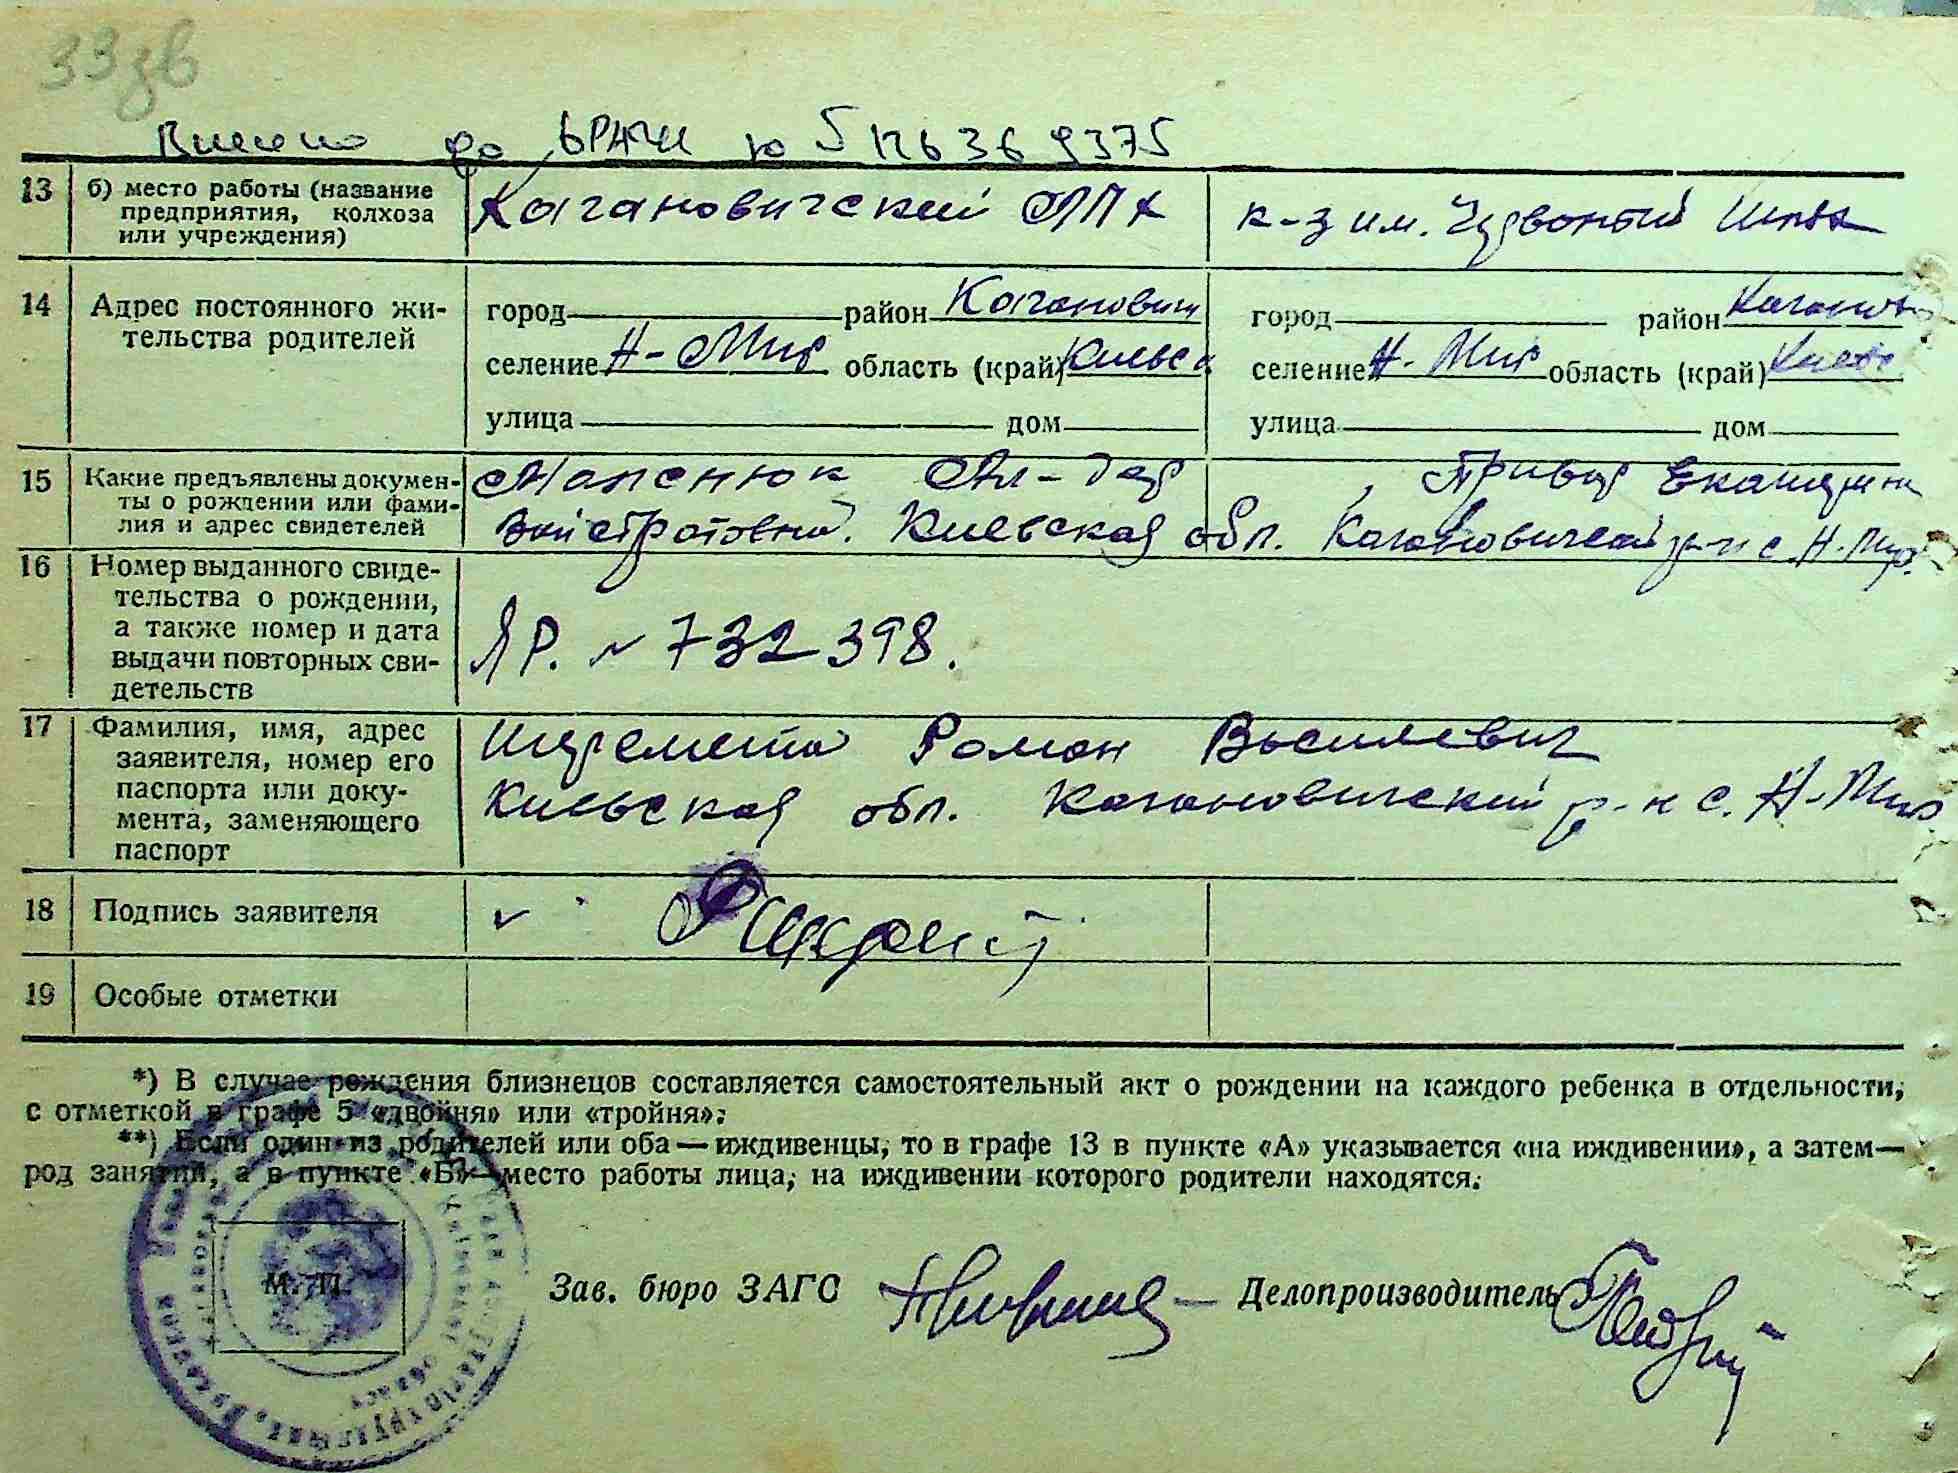 33зв
Внесено до ДРАЦС 5 126 36 9375
13 б) место работы (название Кагановичский к-з им. Червоный Шлях
предприятия, колхоза
или учреждения)
14 Адрес постоянного жи- город район Каганович город район Каганов
тельства родителей селение Н-Мир область (край) Киевск селение Н-Мир область (край) Киевс
улица дом улица дом
15 Какие предъявлены докумен- Ал-дра, Екатерина
ты о рождении или фами- Киевская обл. Кагановичский р-н с. Н-Мир.
лия и адрес свидетелей
16 Номер выданного свиде-
тельства о рождении,
а также номер и дата ЯР. № 732398.
выдачи повторных сви-
детельств
17 Фамилия, имя, адрес Шеремета Роман Васильевич
заявителя, номер его
паспорта или доку- Киевская обл. Кагановичский р-н с. Н-Мир
мента, заменяющего
паспорт
18 Подпись заявителя
19 Особые отметки
*) В случае рождения близнецов составляется самостоятельный акт о рождении на каждого ребенка в отдельности,
с отметкой в графе 5 «двойня» или «тройня»;
**) Если один из родителей или оба — иждивенцы, то в графе 13 в пункте «А» указывается «на иждивении», а затем—
род занятий, а в пункте «Б»—место работы лица, на иждивении которого родители находятся.
М. П. Зав. бюро ЗАГС Делопроизводитель